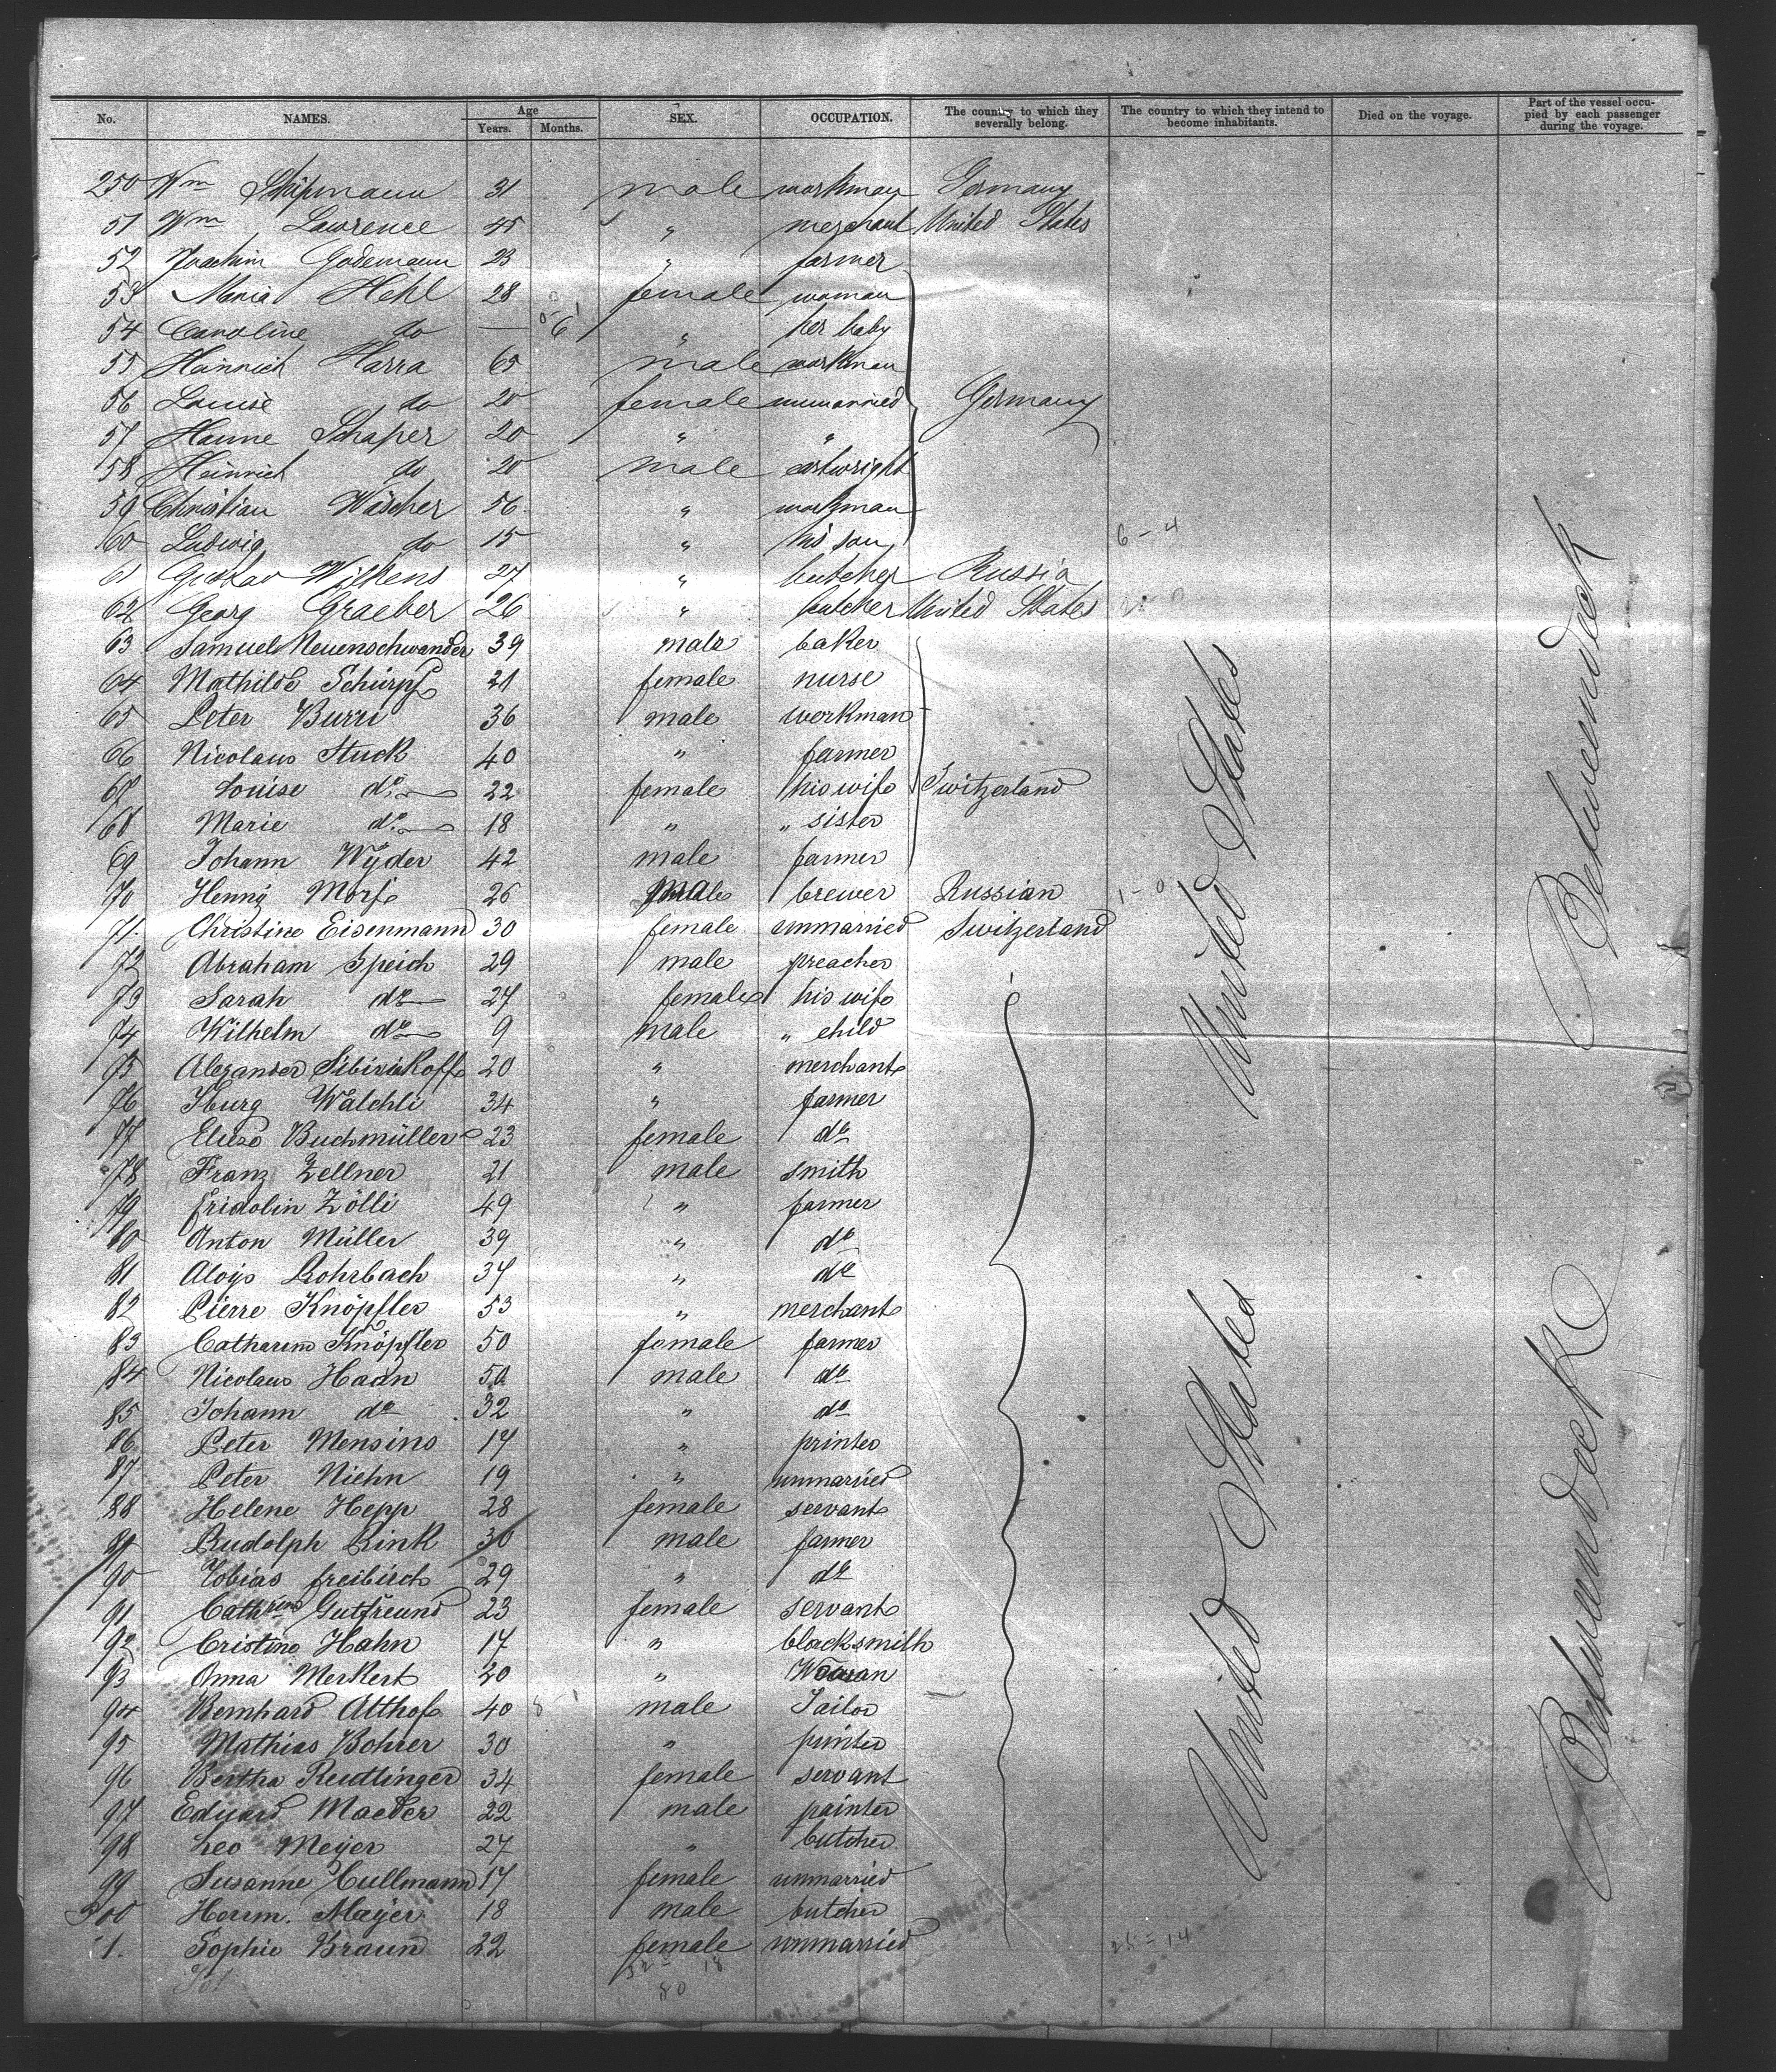 No. NAMES. Age Years. Months. SEX. OCCUPATION. The country to which they severally belong. The country to which they intend to become inhabitants. Died on the voyage. Part of the vessel occupied by each passenger during the voyage.
250 Wm 31 male workman Germany
51 Wm Lawrence 45 " merchant United States
52 Joachim Godemann 23 " farmer
53 Maria Hehl 28 female woman
54 Caroline do — 6 " her baby
55 Heinrich Harra 65 male workman
56 Louise do 20 female unmarried Germany
57 Hanne Schaper 20 " "
58 Heinrich do 20 male cartwright
59 Christian Wäscher 56 " workman
60 Ludwig do 15 " his son 6-4
61 Gustav Wilkens 27 " butcher Russia
62 Georg Graeber 26 " butcher United States
63 Samuel Neuenschwander 39 male baker
64 Mathilde Schürpf 21 female nurse
65 Peter Burri 36 male workman
66 Nicolaus Stuck 40 " farmer
67 Louise do 22 female his wife Switzerland
68 Marie do 18 " " sister
69 Johann Wyder 42 male farmer
70 Henny Morf 26 male brewer Russian 1-0
71. Christine Eisenmann 30 female unmarried Switzerland
72 Abraham Speich 29 male preacher
73 Sarah do 27 female his wife
74 Wilhelm do 9 male " child
75 Alexander 20 " merchant
76 Wälchli 34 " farmer
77 Elise Buchmüller 23 female do
78 Franz Zellner 21 male smith
79 Fridolin Zölli 49 " farmer
80 Anton Müller 39 " do
81 Aloys Rohrbach 34 " do
82 Pierre Knöpfler 53 " merchant
83 Catharine Knöpfler 50 female farmer
84 Nicolaus Haan 50 male do
85 Johann do 32 " do
86 Peter Mensino 17 " printer
87 Peter Niehn 19 " unmarried
88 Helene Hepp 28 female servant
89 Rudolph Rink 30 male farmer
90 Tobias Freibisch 29 " do
91 Cathrine Gutfreund 23 female servant
92 Cristine Hahn 17 " blacksmith
93 Anna Merkert 20 " Woman
94 Bernhard Althof 40 male Tailor
95 Mathias Bohrer 30 " printer
96 Bertha Reuttinger 34 female servant
97 Eduard Maeder 22 male painter
98 Leo Meyer 27 " butcher
99 Susanne Cullmann 17 female unmarried
300 Herm. Mayer 18 male butcher
1. Sophie Braun 22 female unmarried 25-14
18
80
301
United States
United States
Betweendeck
Betweendeck